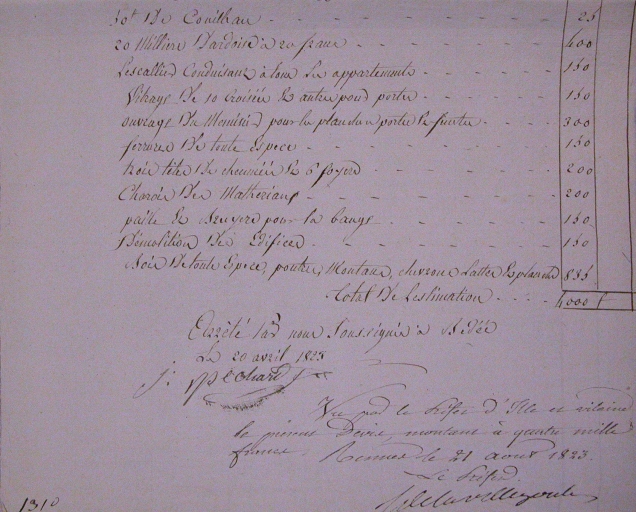 50 # De Couillau - 25
20 Milliers D'ardoise à 20 francs - 400
Lescallier Conduisant à tous les appartements - 150
Vitrage De 10 Croisée & autre pour porte - 150
ouvrage Du Menuisié pour les planches portes & fenetre - 300
ferrure De toute Espece - 150
trois tête De cheminée & 6 foyers - 200
Charois De Matheriaux - 200
paille & Bruyere pour la bauge - 150
Démolition De Edifices - 150
Bois De toute Espece, poutres, Montans, chevrons Lattes & planche 885
Total De Lestimation - 4000 f
Arrêté Par nous Soussignés à Bédée
Le 20 avril 1823
Vu par le Préfet d'Ille et vilaine
le présent Devis, montant à quatre mille
francs. Rennes le 21 aout 1823.
Le Préfet.
1310